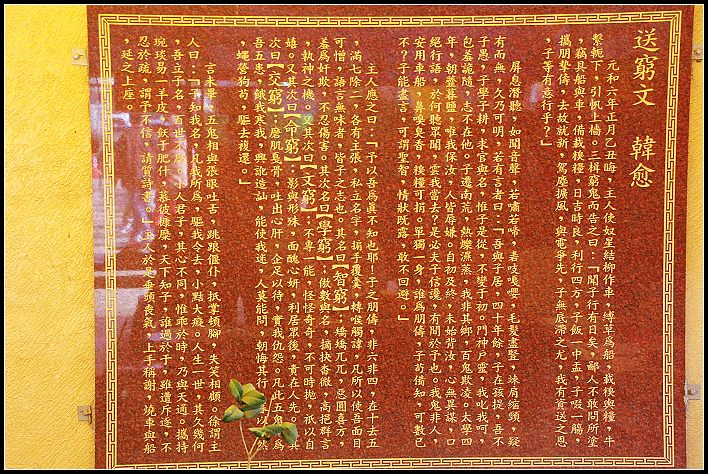 送窮文　韓愈
元和六年正月乙丑晦，主人使奴星結柳作車，縛草爲船，載糗輿粻，牛
繫軛下，引帆上檣。三揖窮鬼而告之曰：「聞子行有日矣，鄙人不敢問所塗
，竊具船與車，備載糗粻，日吉時良，利行四方，子飯一盂，子啜一觴，
攜朋摯儔，去故就新，駕塵彍風，與電爭先，子無底滯之尤，我有資送之恩
，子等有意行乎？」
屏息潛聽，如聞音聲，若嘯若啼，砉欻嘎嚶，毛髮盡豎，竦肩縮頸，疑
有而無，久乃可明，若有言者曰：「吾與子居，四十年餘，子在孩提，吾不
子愚，子學子耕，求官與名，惟子是從，不變于初。門神戶靈，我叱我呵，
包羞詭隨，志不在他。子遷南荒，熱爍濕蒸，我非其鄉，百鬼欺凌。太學四
年，朝韲暮鹽，惟我保汝，人皆嫌汝。自初及終，未始背汝，心無異謀，口
絕行語，於何聽聞，雲我當去？是必夫子信讒，有間於予也。我鬼非人，
安用車船，鼻嗅臭香，糗粻可捐。單獨一身，誰爲朋儔，子苟備知，可數已
不？子能盡言，可謂聖智，情狀既露，敢不回避。」
主人應之曰：「予以吾爲眞不知也耶！子之朋儔，非六非四，在十去五
，滿七除二，各有主張，私立名字，捩手覆羹，轉喉觸諱，凡所以使吾面目
可憎，語言無味者，皆子之志也。其名曰【智窮】：矯矯亢亢，惡圓喜方，
羞爲奸欺，不忍傷害。其次名曰【學窮】：傲數與名，摘抉杳微，高挹群言
，執神之機。又其次曰【文窮】：不專一能，怪怪奇奇，不可時施，祇以自
嬉。又其次曰【命窮】：影與形殊，面醜心妍，利居眾後，責在人先。又其
次曰【交窮】：磨肌戛骨，吐出心肝，企足以待，寘我仇怨。凡此五鬼，爲
吾五患，飢我寒我，興訛造訕，能使我迷，人莫能間，朝悔其行，以然
，蠅營狗苟，驅去複還。」
言未畢，五鬼相與張眼吐舌，跳踉偃仆，抵掌頓腳，失笑相顧。徐謂主
人曰：「子知我名，凡我所爲，驅我令去，小黠大癡。人生一世，其久幾何
，吾立子名，百世不磨。小人君子，其心不同，惟乖於時，乃與天通。攜持
琬琰，易一羊皮，飫于肥甘，慕彼糠糜。天下知子，誰過於予。雖遭斥逐，不
忍於疏，謂予不信，請質詩書。」主人於是垂頭喪氣，上手稱謝，燒車與船
，延之上座。